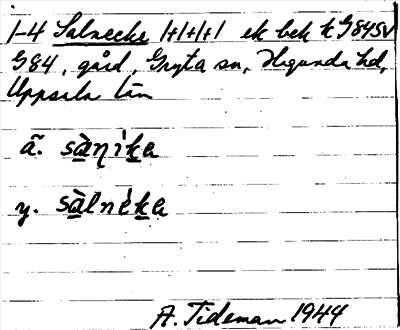 1-4 Salnecke 1+1+1+1 ek bek k G84SV
G84, gård, Gryta sn, Hagunda hd,
Uppsala län
ä. sàṇìka
y. sàlnèka
A. Tideman 1944